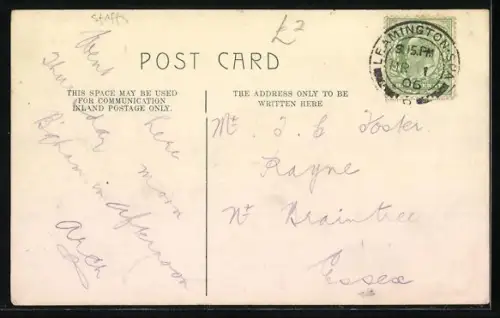 Staffs
£2
Went here
Thursday morn
B'gham in afternoon
Arch
POST CARD
THIS SPACE MAY BE USED
FOR COMMUNICATION
INLAND POSTAGE ONLY.
THE ADDRESS ONLY TO BE
WRITTEN HERE
LEAMINGTON-SPA
8 15 PM
1
06
Mr. J. C Foster
Rayne
Nr Braintree
Essex